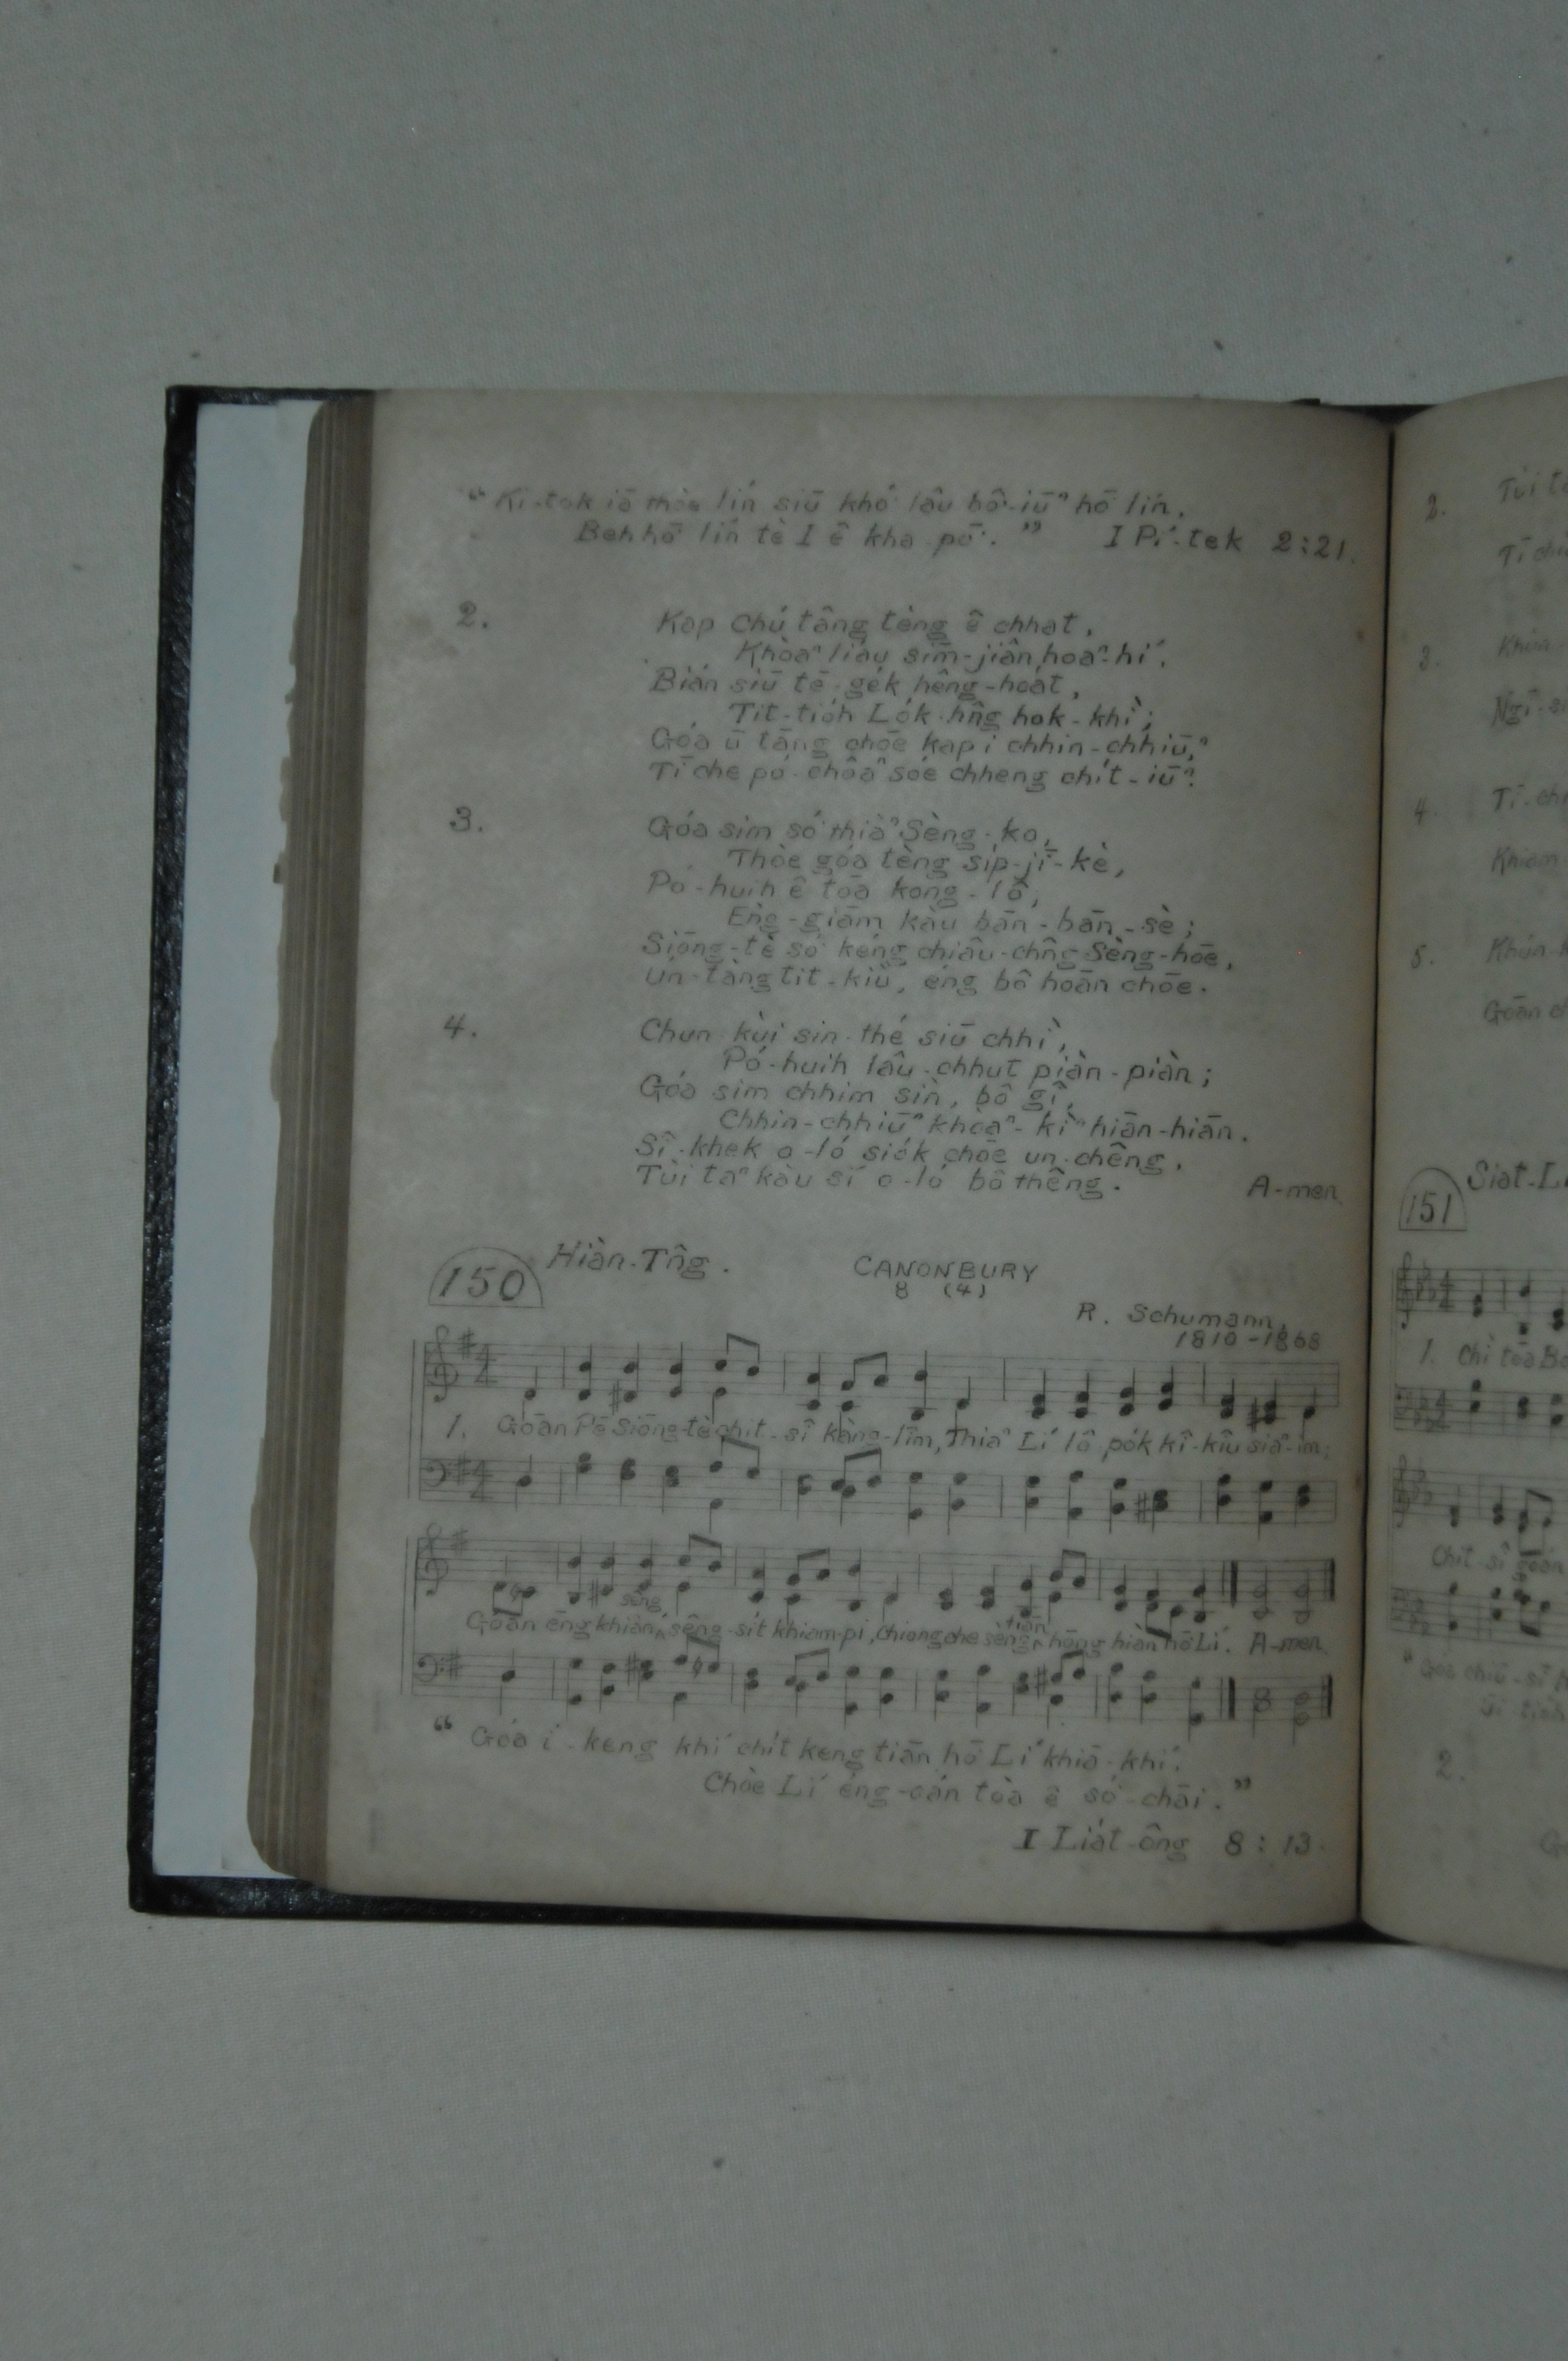 “ Ki-tok iā thòe lín siū khó͘ lâu bô͘-iūⁿ hō͘ lín,
Beh hō͘ lín tè I ê kha-pō͘. ” I Pí-tek 2:21.
2. Kap Chú tâng tèng ê chhat,
Khòaⁿ liáu sim-jiân hoaⁿ-hí,
Bián siū tē-ge̍k hêng-hoa̍t,
Tit-tio̍h Lo̍k-hn̂g hok-khì;
Góa ū tāng chōe kap i chhin-chhiūⁿ,
Tī che pó-chôaⁿ sóe chheng chi̍t-iūⁿ.
3. Góa sim só͘ thiàⁿ Sèng-ko,
Thòe góa tèng si̍p-jī-kè,
Pó-huih ê tōa kong-lô,
Èng-giām kàu bān-bān-sè;
Siōng-tè só͘ kéng chiâu-chn̂g Sèng-hōe,
Ún-tàng tit-kiù, éng bô hoān chōe.
4. Chun-kùi sin-thé siū chhì,
Pó-huih lâu-chhut piàn-piàn;
Góa sim chhim sìn, bô gî,
Chhin-chhiūⁿ khòaⁿ-kìⁿ hiān-hiān.
Sî-khek o-ló sio̍k chōe un-chêng,
Tùi taⁿ kàu sí o-ló bô thêng. A-men.
150 Hiàn-Tn̂g. CANONBURY
8 (4)
R. Schumann,
1810-1868
1. Goān Pē Siōng-tè chit-sî kàng-lîm, Thiaⁿ Lí lô-po̍k kî-kiû siaⁿ-im;
sêng,
tiān
Goān ēng khiân sêng-si̍t khiam-pi, Chiong che sèng hōng hiàn hō͘ Lí. A-men.
“ Góa í-keng khí chi̍t keng tiān hō͘ Lí khiā-khí,
Chòe Lí éng-oán tòa ê só͘-chāi. ”
I Lia̍t-ông 8 : 13.
2.
3.
4. Tī-
5.
151 Siat-L
1. Chí tōa
Chit sî goán
2.